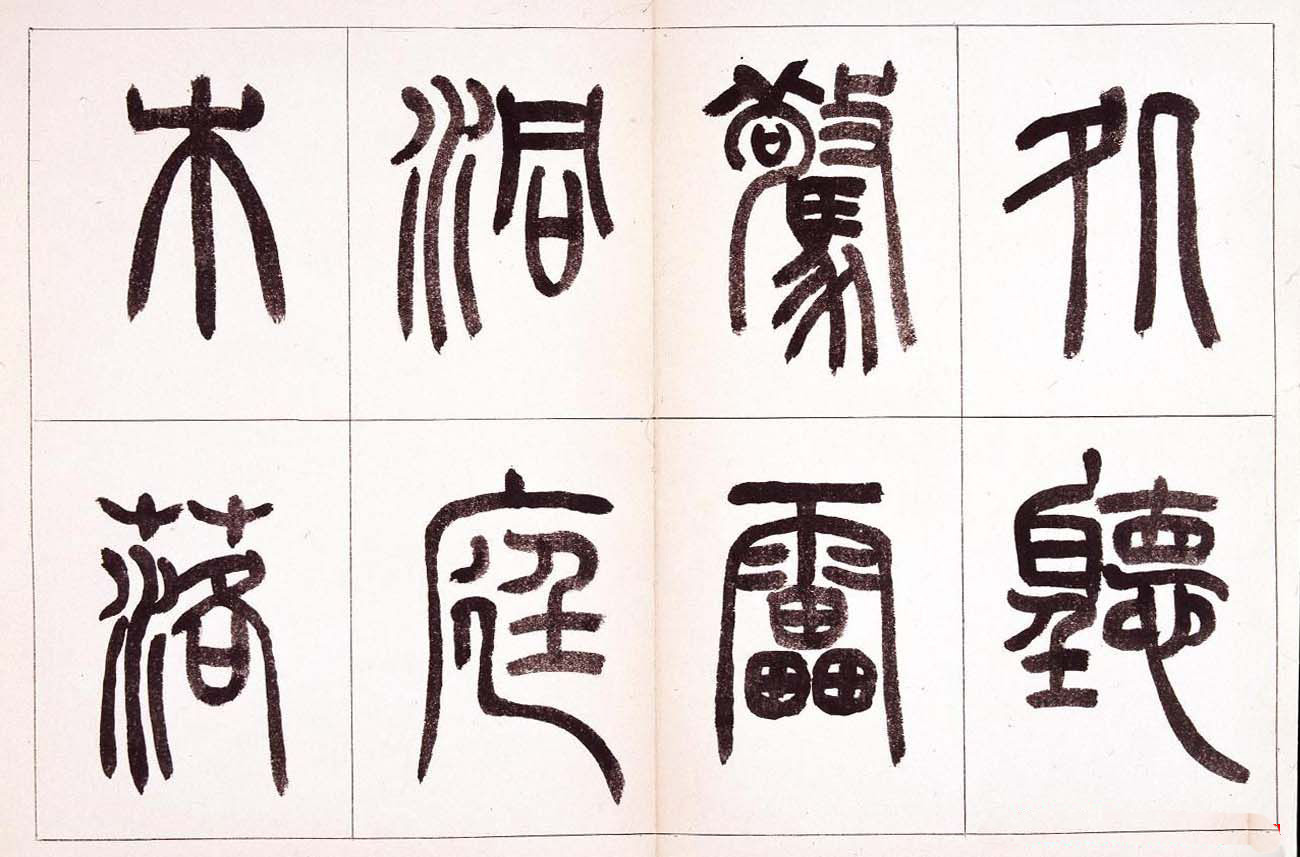 処聽
驚雷
洞庭
木落